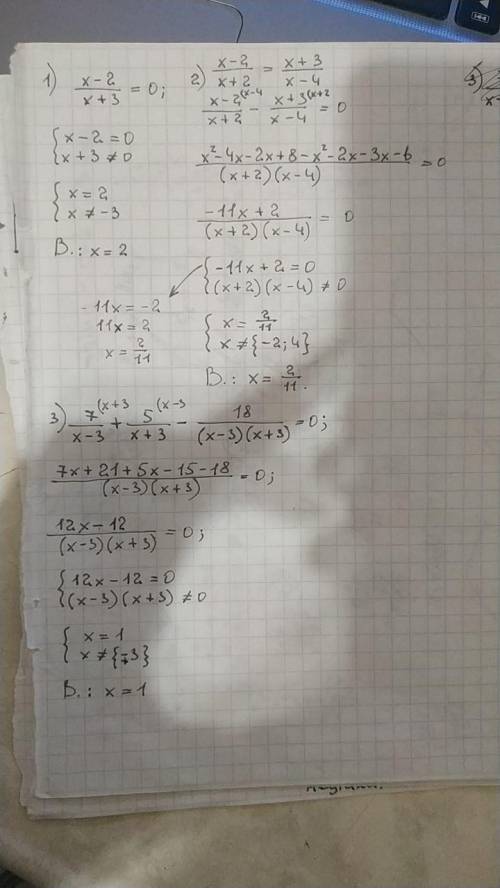 1) (x-2)/(x+3) = 0;
{ x-2=0
x+3≠0
{ x=2
x≠-3
В.: x=2
2) (x-2)/(x+2) = (x+3)/(x-4)
x-2(x-4/(x+2) - x+3(x+2/(x-4) = 0
(x²-4x-2x+8-x²-2x-3x-6)/((x+2)(x-4)) = 0
(-11x+2)/((x+2)(x-4)) = 0
{ -11x+2=0
(x+2)(x-4)≠0
-11x=-2
11x=2
x=2/11
{ x=2/11
x≠{-2;4}
В.: x=2/11.
3) 7(x+3/(x-3) + 5(x-3/(x+3) - 18/((x-3)(x+3)) = 0;
(7x+21+5x-15-18)/((x-3)(x+3)) = 0;
(12x-12)/((x-3)(x+3)) = 0;
{ 12x-12=0
(x-3)(x+3)≠0
{ x=1
x≠{∓3}
В.: x=1
3)